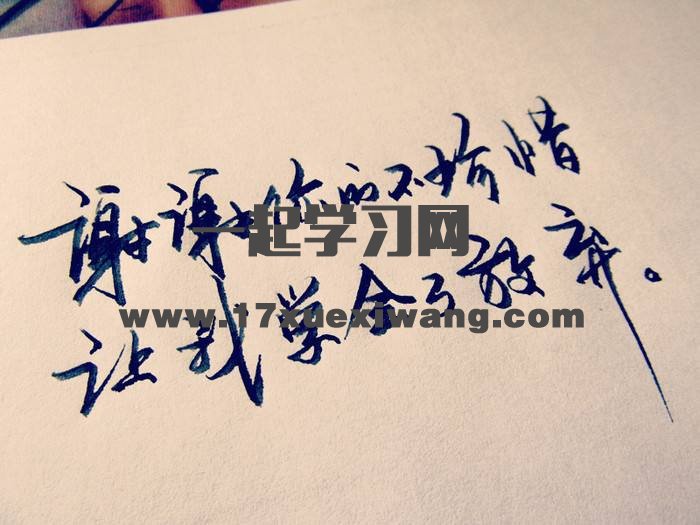 谢谢你的不珍惜
一起学习网
www.17xuexiwang.com
让我学会了放弃。